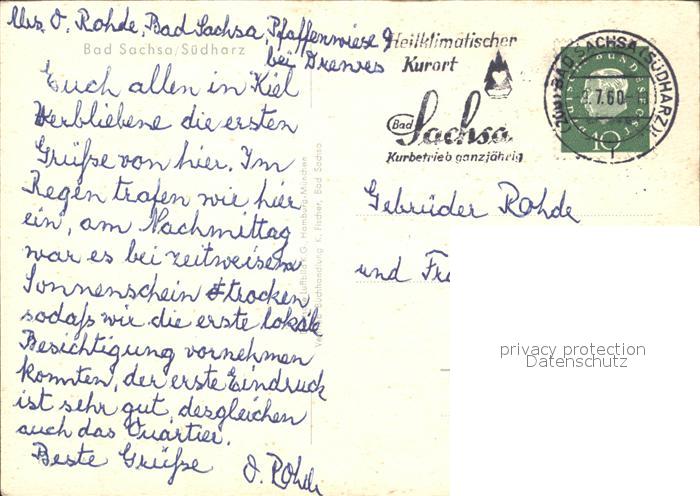 Abs. O. Rohde, Bad Sachsa, Pfaffenwiese 9
bei Drewes
Bad Sachsa/Südharz
Euch allen in Kiel
Verbliebene die ersten
Grüße von hier. Im
Regen trafen wir hier
ein, am Nachmittag
war es bei zeitweisem
Sonnenschein trocken
sodaß wir die erste lokale
Besichtigung vornehmen
konnten, der erste Eindruck
ist sehr gut, desgleichen
auch das Quartier.
Beste Grüße O. Rohde
Luftbild K.G. Hamburg-München
Buchhandlung K. Fischer, Bad Sachsa
Heilklimatischer
Kurort
Bad
Sachsa
Kurbetrieb ganzjährig
BAD SACHSA (SÜDHARZ)
7.60
DEUTSCHE BUNDESPOST
10
Gebrüder Rohde
und
privacy protection
Datenschutz